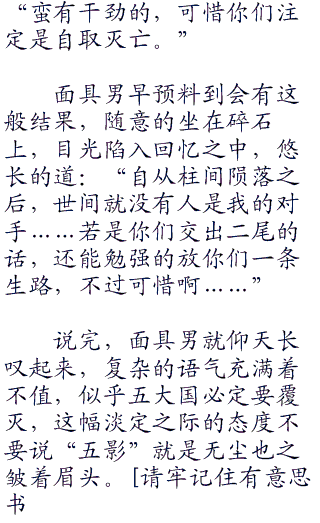 “蛮有干劲的，可惜你们注
定是自取灭亡。”
面具男早预料到会有这
般结果，随意的坐在碎石
上，目光陷入回忆之中，悠
长的道：“自从柱间陨落之
后，世间就没有人是我的对
手……若是你们交出二尾的
话，还能勉强的放你们一条
生路，不过可惜啊……”
说完，面具男就仰天长
叹起来，复杂的语气充满着
不值，似乎五大国必定要覆
灭，这幅淡定之际的态度不
要说“五影”就是无尘也之
皱着眉头。[请牢记住有意思
书